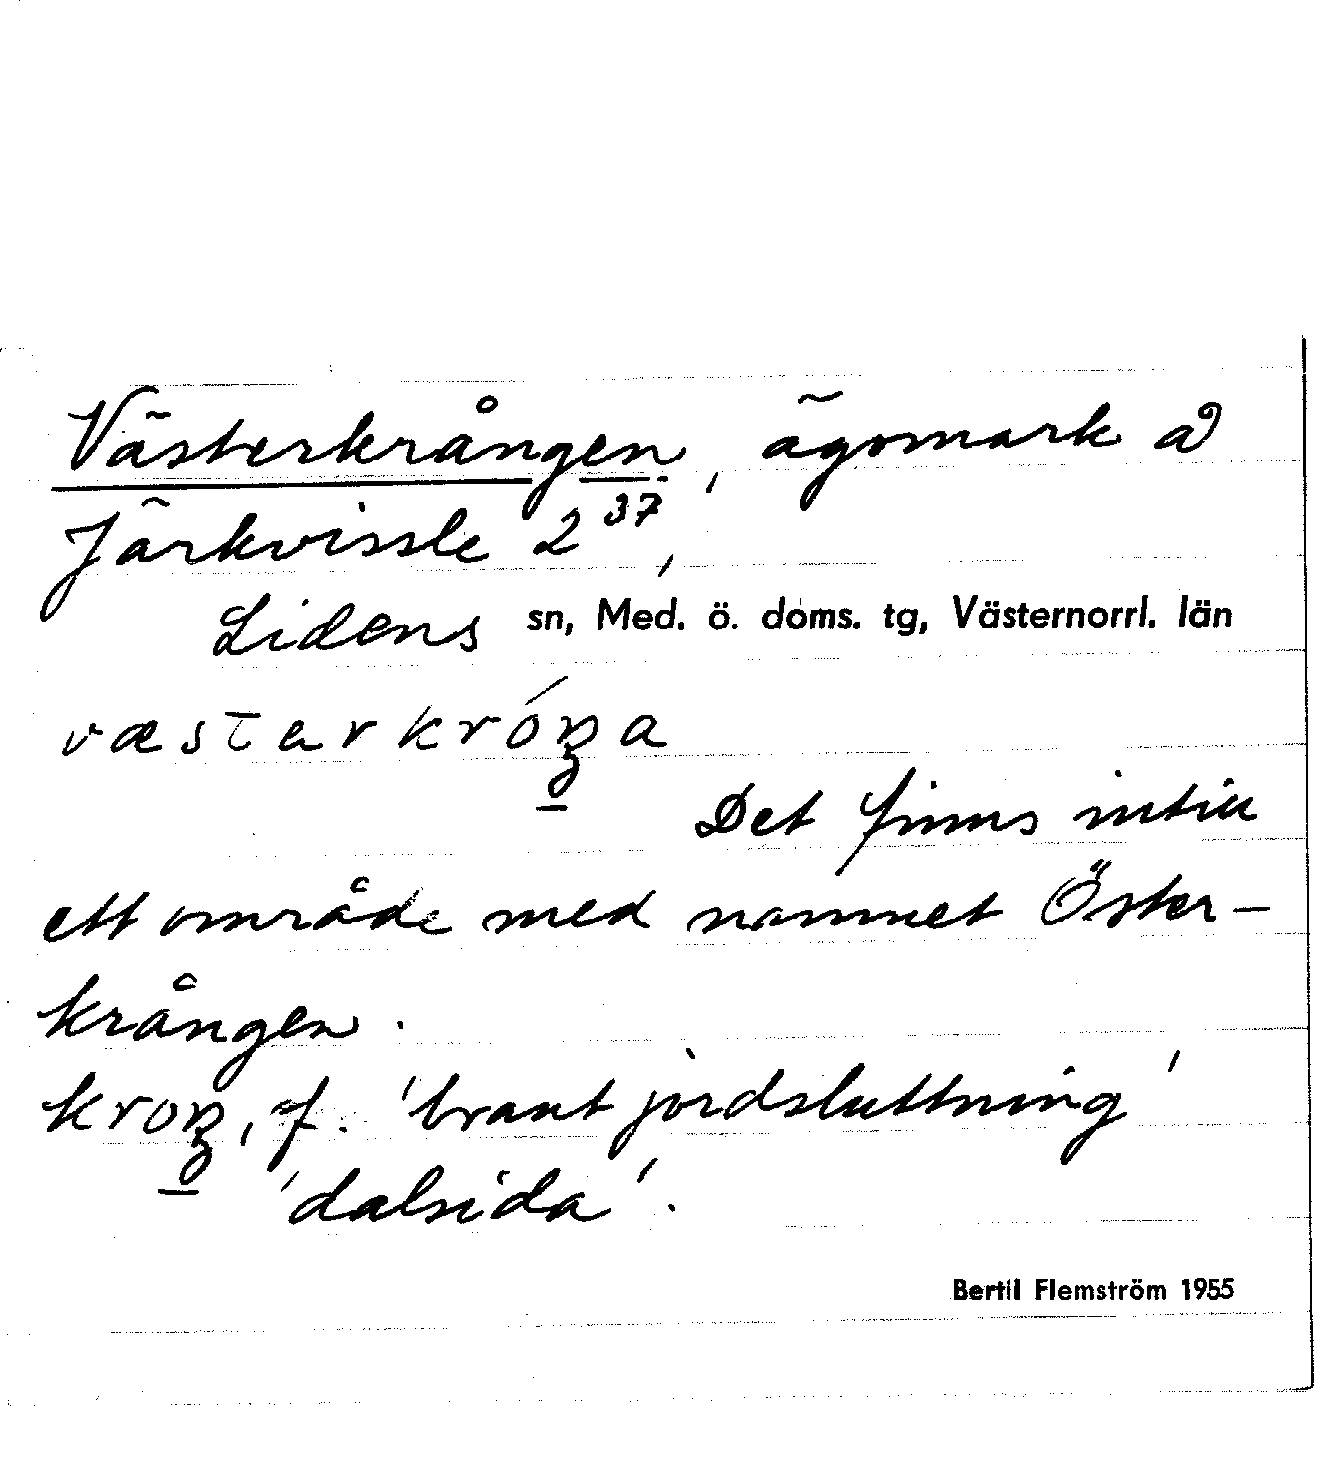 Västerkrången, ägomark å
Järkvissle 2³⁷,
Lidens sn, Med. ö. doms. tg, Västernorrl. län
væstarkróŋa
Det finns intill
ett område med namnet Öster-
krången.
kroŋ, f. 'brant jordsluttning'
'dalsida'.
Bertil Flemström 1955